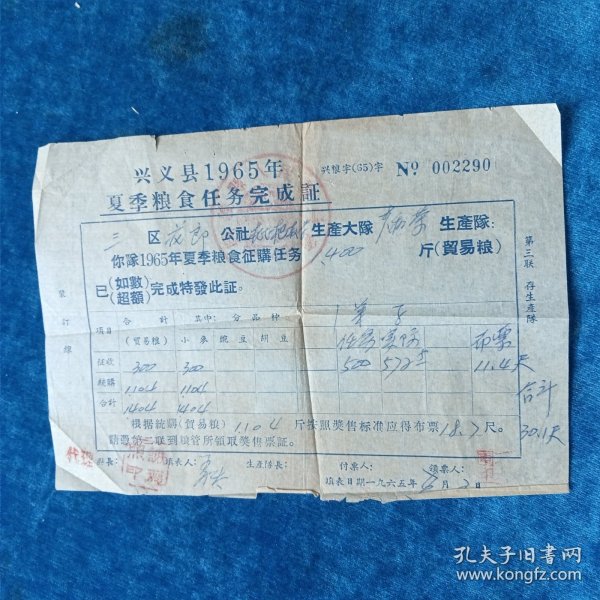 兴义县1965年
夏季粮食任务完成証
兴粮字(65)字 № 002290
三 区 公社 生產大隊 生產隊:
你隊1965年夏季粮食征購任务 1400 斤(貿易粮)
已(如數 超額)完成特發此証。
第三联 存生產隊
装訂線
項目 合計 其中: 分品种
(貿易粮) 小麥 豌豆 胡豆 任务 布票
征收 300 300 500 11.4尺
統購 1104 1104
合計 1404 1404
合計 30.1尺
根据統購(貿易粮) 1104 斤按照獎售标准应得布票 18.7 尺。
請憑第二联到粮管所領取獎售票証。
代理 科長: 填表人: 生產隊長: 付票人: 領票人:
填表日期一九六五年 月 2 日
孔夫子旧书网
www.kongfz.com